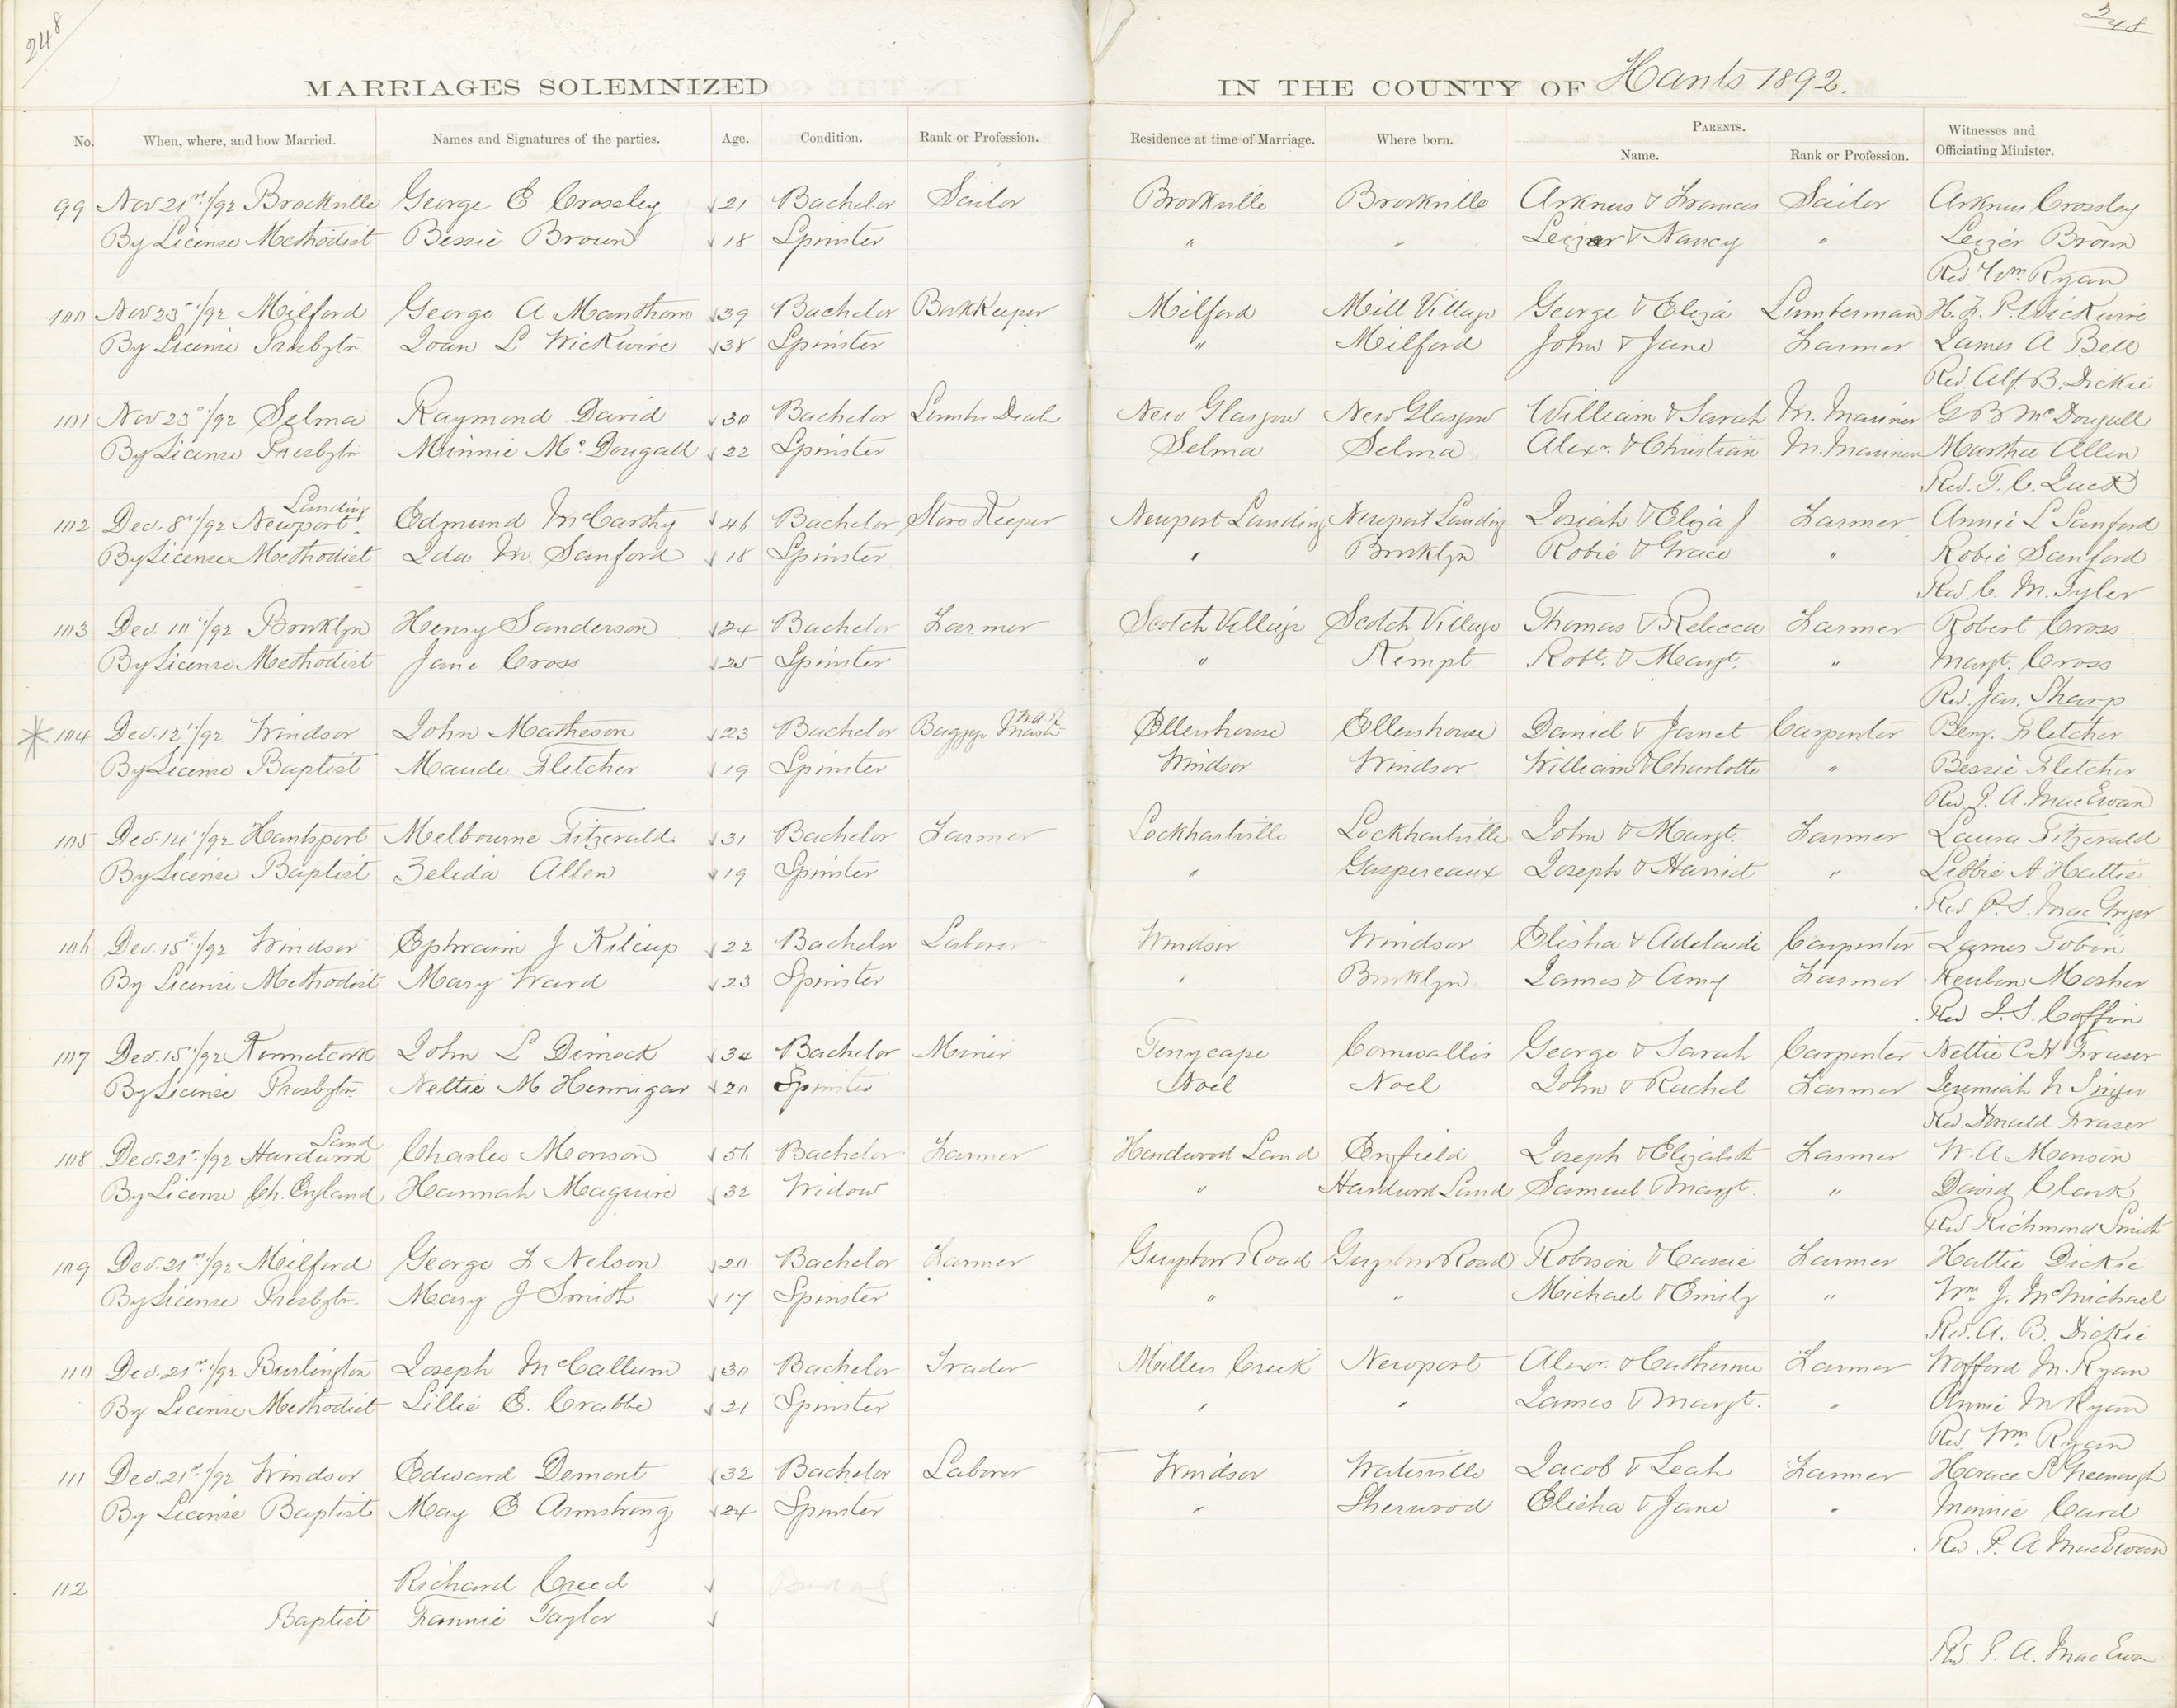 248
248
MARRIAGES SOLEMNIZED IN THE COUNTY OF Hants 1892.
No. When, where, and how Married. Names and Signatures of the parties. Age. Condition. Rank or Profession. Residence at time of Marriage. Where born. PARENTS. Name. Rank or Profession. Witnesses and Officiating Minister.
99 Nov 21st/92 Brookville George E Crossley 21 Bachelor Sailor Brookville Brookville & Frances Sailor Crossley
By License Methodist Bessie Brown 18 Spinster " " Leizer & Nancy " Leizer Brown
Rev. Wm Ryan
100 Nov 23/92 Milford George A Manthorn 39 Bachelor BookKeeper Milford Mill Village George & Eliza Lumberman H. F. P. Wickwire
By License Presbytn. Joan L Wickwire 38 Spinster " Milford John & Jane Farmer James A Bell
Rev. Alf. B. Dickie
101 Nov 23/92 Selma Raymond David 30 Bachelor Lumber Dealer New Glasgow New Glasgow William & Sarah M. Mariner G B McDougall
By License Presbytn Minnie McDougall 22 Spinster Selma Selma Alexr. & Christian M. Mariner Martha Allen
Rev. T. C. Jack
102 Dec. 8th/92 Newport Landing Edmund McCarthy 46 Bachelor Store Keeper Newport Landing Newport Landing Josiah & Eliza J Farmer Annie L Sanford
By License Methodist Ida M. Sanford 18 Spinster " Brooklyn Robie & Grace " Robie Sanford
Rev. C. M. Tyler
103 Dec. 10th/92 Brooklyn Henry Sanderson 24 Bachelor Farmer Scotch Village Scotch Village Thomas & Rebecca Farmer Robert Cross
By License Methodist Jane Cross 25 Spinster " Kempt Robt. & Margt. " Margt. Cross
Rev. Jas. Sharp
* 104 Dec. 12th/92 Windsor John Matheson 23 Bachelor Baggage Master Ellershouse Ellershouse Daniel & Janet Carpenter Benj. Fletcher
By License Baptist Maude Fletcher 19 Spinster Windsor Windsor William & Charlotte " Bessie Fletcher
Rev. P. A. MacEwan
105 Dec. 14th/92 Hantsport Melbourne Fitzerald. 31 Bachelor Farmer Lockhartville Lockhartville John & Margt. Farmer Laura Fitzerald
By License Baptist Zelida Allen 19 Spinster " Gaspereaux Joseph & Harriet " Libbie A Hattie
Rev P. S. MacGregor
106 Dec. 15th/92 Windsor Ephraim J Kilcup 22 Bachelor Laborer Windsor Windsor Elisha & Adelaide Carpenter James Tobin
By License Methodist Mary Ward 23 Spinster " Brooklyn James & Amy Farmer Reuben Mosher
Rev J. S. Coffin
107 Dec. 15th/92 Kennetcook John L Dimock 34 Bachelor Miner Tenycape Cornwallis George & Sarah Carpenter Nettie C H Fraser
By License Presbytn. Nettie M Hennigar 20 Spinster Noel Noel John & Rachel Farmer Jeremiah N Singer
Rev. Donald Fraser
108 Dec. 21st/92 Hardwood Land Charles Monson 56 Bachelor Farmer Hardwood Land Enfield Joseph & Elizabeth Farmer W. A. Monson
By License Ch. England Hannah Maguire 32 Widow " Hardwood Land Samuel & Margt. " David Clark
Rev Richmond Smith
109 Dec. 21st/92 Milford George F Nelson 20 Bachelor Farmer Guysboro Road Guysboro Road Robison & Cassie Farmer Hattie Dickie
By License Presbytn. Mary J Smith 17 Spinster " " Michael & Emily " Wm. J. McMichael
Rev. A. B. Dickie
110 Dec. 21st/92 Burlington Joseph McCallum 30 Bachelor Trader Millers Creek Newport Alexr. & Catherine Farmer Wofford M. Ryan
By License Methodist Lillie E. Crabbe 21 Spinster " " James & Margt. " Annie M Ryan
Rev. Wm. Ryan
111 Dec. 21st/92 Windsor Edward Demont 32 Bachelor Laborer Windsor Waterville Jacob & Leah Farmer Horace S Greenough
By License Baptist May E Armstrong 24 Spinster " Sherwood Elisha & Jane " Minnie Card
Rev. P. A MacEwan
112 Richard Creed
Baptist Fannie Taylor
Rev. P. A. MacEwan